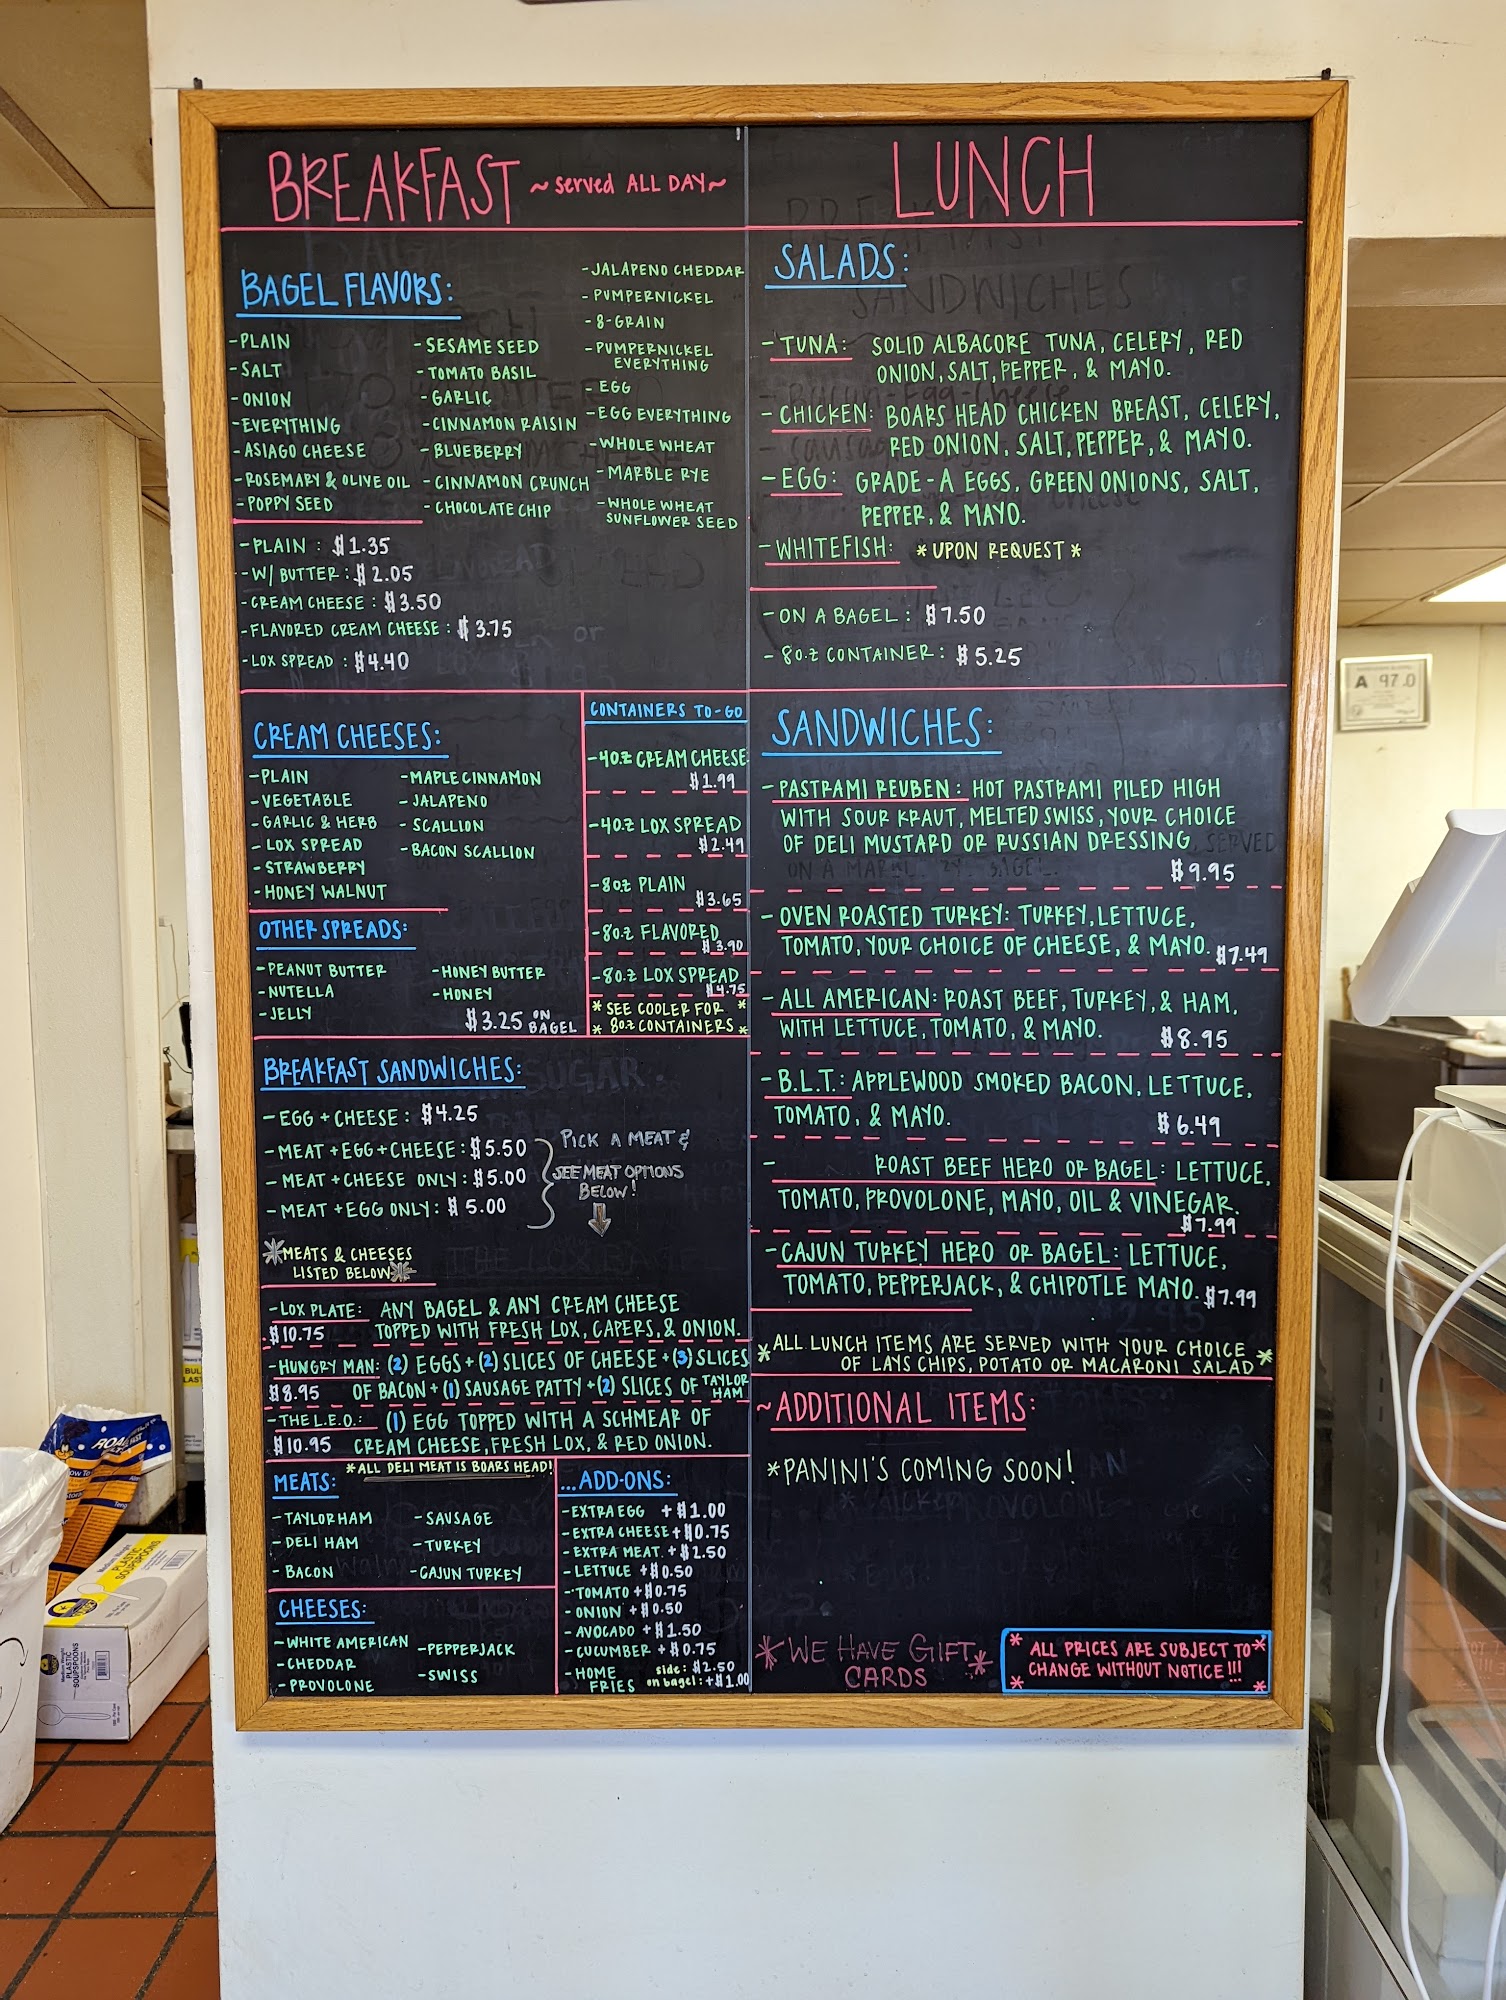 BREAKFAST ~ served ALL DAY ~
BAGEL FLAVORS:
- PLAIN
- SALT
- ONION
- EVERYTHING
- ASIAGO CHEESE
- ROSEMARY & OLIVE OIL
- POPPY SEED
- SESAME SEED
- TOMATO BASIL
- GARLIC
- CINNAMON RAISIN
- BLUEBERRY
- CINNAMON CRUNCH
- CHOCOLATE CHIP
- JALAPENO CHEDDAR
- PUMPERNICKEL
- 8-GRAIN
- PUMPERNICKEL
EVERYTHING
- EGG
- EGG EVERYTHING
- WHOLE WHEAT
- MARBLE RYE
- WHOLE WHEAT
SUNFLOWER SEED
- PLAIN : $1.35
- W/ BUTTER : $2.05
- CREAM CHEESE : $3.50
- FLAVORED CREAM CHEESE : $3.75
- LOX SPREAD : $4.40
CREAM CHEESES:
- PLAIN
- VEGETABLE
- GARLIC & HERB
- LOX SPREAD
- STRAWBERRY
- HONEY WALNUT
- MAPLE CINNAMON
- JALAPENO
- SCALLION
- BACON SCALLION
OTHER SPREADS:
- PEANUT BUTTER
- NUTELLA
- JELLY
- HONEY BUTTER
- HONEY
$3.25 ON BAGEL
CONTAINERS TO-GO
- 4oz CREAM CHEESE
$1.99
- 4oz LOX SPREAD
$2.49
- 8oz PLAIN
$3.65
- 8oz FLAVORED
$3.90
- 8oz LOX SPREAD
$4.75
* SEE COOLER FOR *
* 8oz CONTAINERS *
BREAKFAST SANDWICHES:
- EGG + CHEESE : $4.25
- MEAT + EGG + CHEESE : $5.50
- MEAT + CHEESE ONLY : $5.00
- MEAT + EGG ONLY : $5.00
PICK A MEAT &
SEE MEAT OPTIONS
BELOW!
*MEATS & CHEESES
LISTED BELOW*
- LOX PLATE: ANY BAGEL & ANY CREAM CHEESE
$10.75 TOPPED WITH FRESH LOX, CAPERS, & ONION.
- HUNGRY MAN: (2) EGGS + (2) SLICES OF CHEESE + (3) SLICES
$8.95 OF BACON + (1) SAUSAGE PATTY + (2) SLICES OF TAYLOR HAM
- THE L.E.O.: (1) EGG TOPPED WITH A SCHMEAR OF
$10.95 CREAM CHEESE, FRESH LOX, & RED ONION.
MEATS: *ALL DELI MEAT IS BOARS HEAD!
- TAYLOR HAM
- DELI HAM
- BACON
- SAUSAGE
- TURKEY
- CAJUN TURKEY
CHEESES:
- WHITE AMERICAN
- CHEDDAR
- PROVOLONE
- PEPPERJACK
- SWISS
...ADD-ONS:
- EXTRA EGG + $1.00
- EXTRA CHEESE + $0.75
- EXTRA MEAT. + $2.50
- LETTUCE + $0.50
- TOMATO + $0.75
- ONION + $0.50
- AVOCADO + $1.50
- CUCUMBER + $0.75
- HOME FRIES side: $2.50
on bagel: + $1.00
LUNCH
SALADS:
- TUNA: SOLID ALBACORE TUNA, CELERY, RED
ONION, SALT, PEPPER, & MAYO.
- CHICKEN: BOARS HEAD CHICKEN BREAST, CELERY,
RED ONION, SALT, PEPPER, & MAYO.
- EGG: GRADE-A EGGS, GREEN ONIONS, SALT,
PEPPER, & MAYO.
- WHITEFISH: *UPON REQUEST*
- ON A BAGEL : $7.50
- 8oz CONTAINER : $5.25
SANDWICHES:
- PASTRAMI REUBEN : HOT PASTRAMI PILED HIGH
WITH SOUR KRAUT, MELTED SWISS, YOUR CHOICE
OF DELI MUSTARD OR RUSSIAN DRESSING
$9.95
- OVEN ROASTED TURKEY: TURKEY, LETTUCE,
TOMATO, YOUR CHOICE OF CHEESE, & MAYO. $7.49
- ALL AMERICAN: ROAST BEEF, TURKEY, & HAM,
WITH LETTUCE, TOMATO, & MAYO. $8.95
- B.L.T.: APPLEWOOD SMOKED BACON, LETTUCE,
TOMATO, & MAYO. $6.49
- ROAST BEEF HERO OR BAGEL: LETTUCE,
TOMATO, PROVOLONE, MAYO, OIL & VINEGAR.
$7.99
- CAJUN TURKEY HERO OR BAGEL: LETTUCE,
TOMATO, PEPPERJACK, & CHIPOTLE MAYO. $7.99
*ALL LUNCH ITEMS ARE SERVED WITH YOUR CHOICE *
OF LAYS CHIPS, POTATO OR MACARONI SALAD
~ADDITIONAL ITEMS:
*PANINI'S COMING SOON!
*WE HAVE GIFT *
CARDS
*ALL PRICES ARE SUBJECT TO*
*CHANGE WITHOUT NOTICE!!! *
A 97.0
PLASTIC
SOUPSPOONS
PLASTIC
SOUPSPOONS